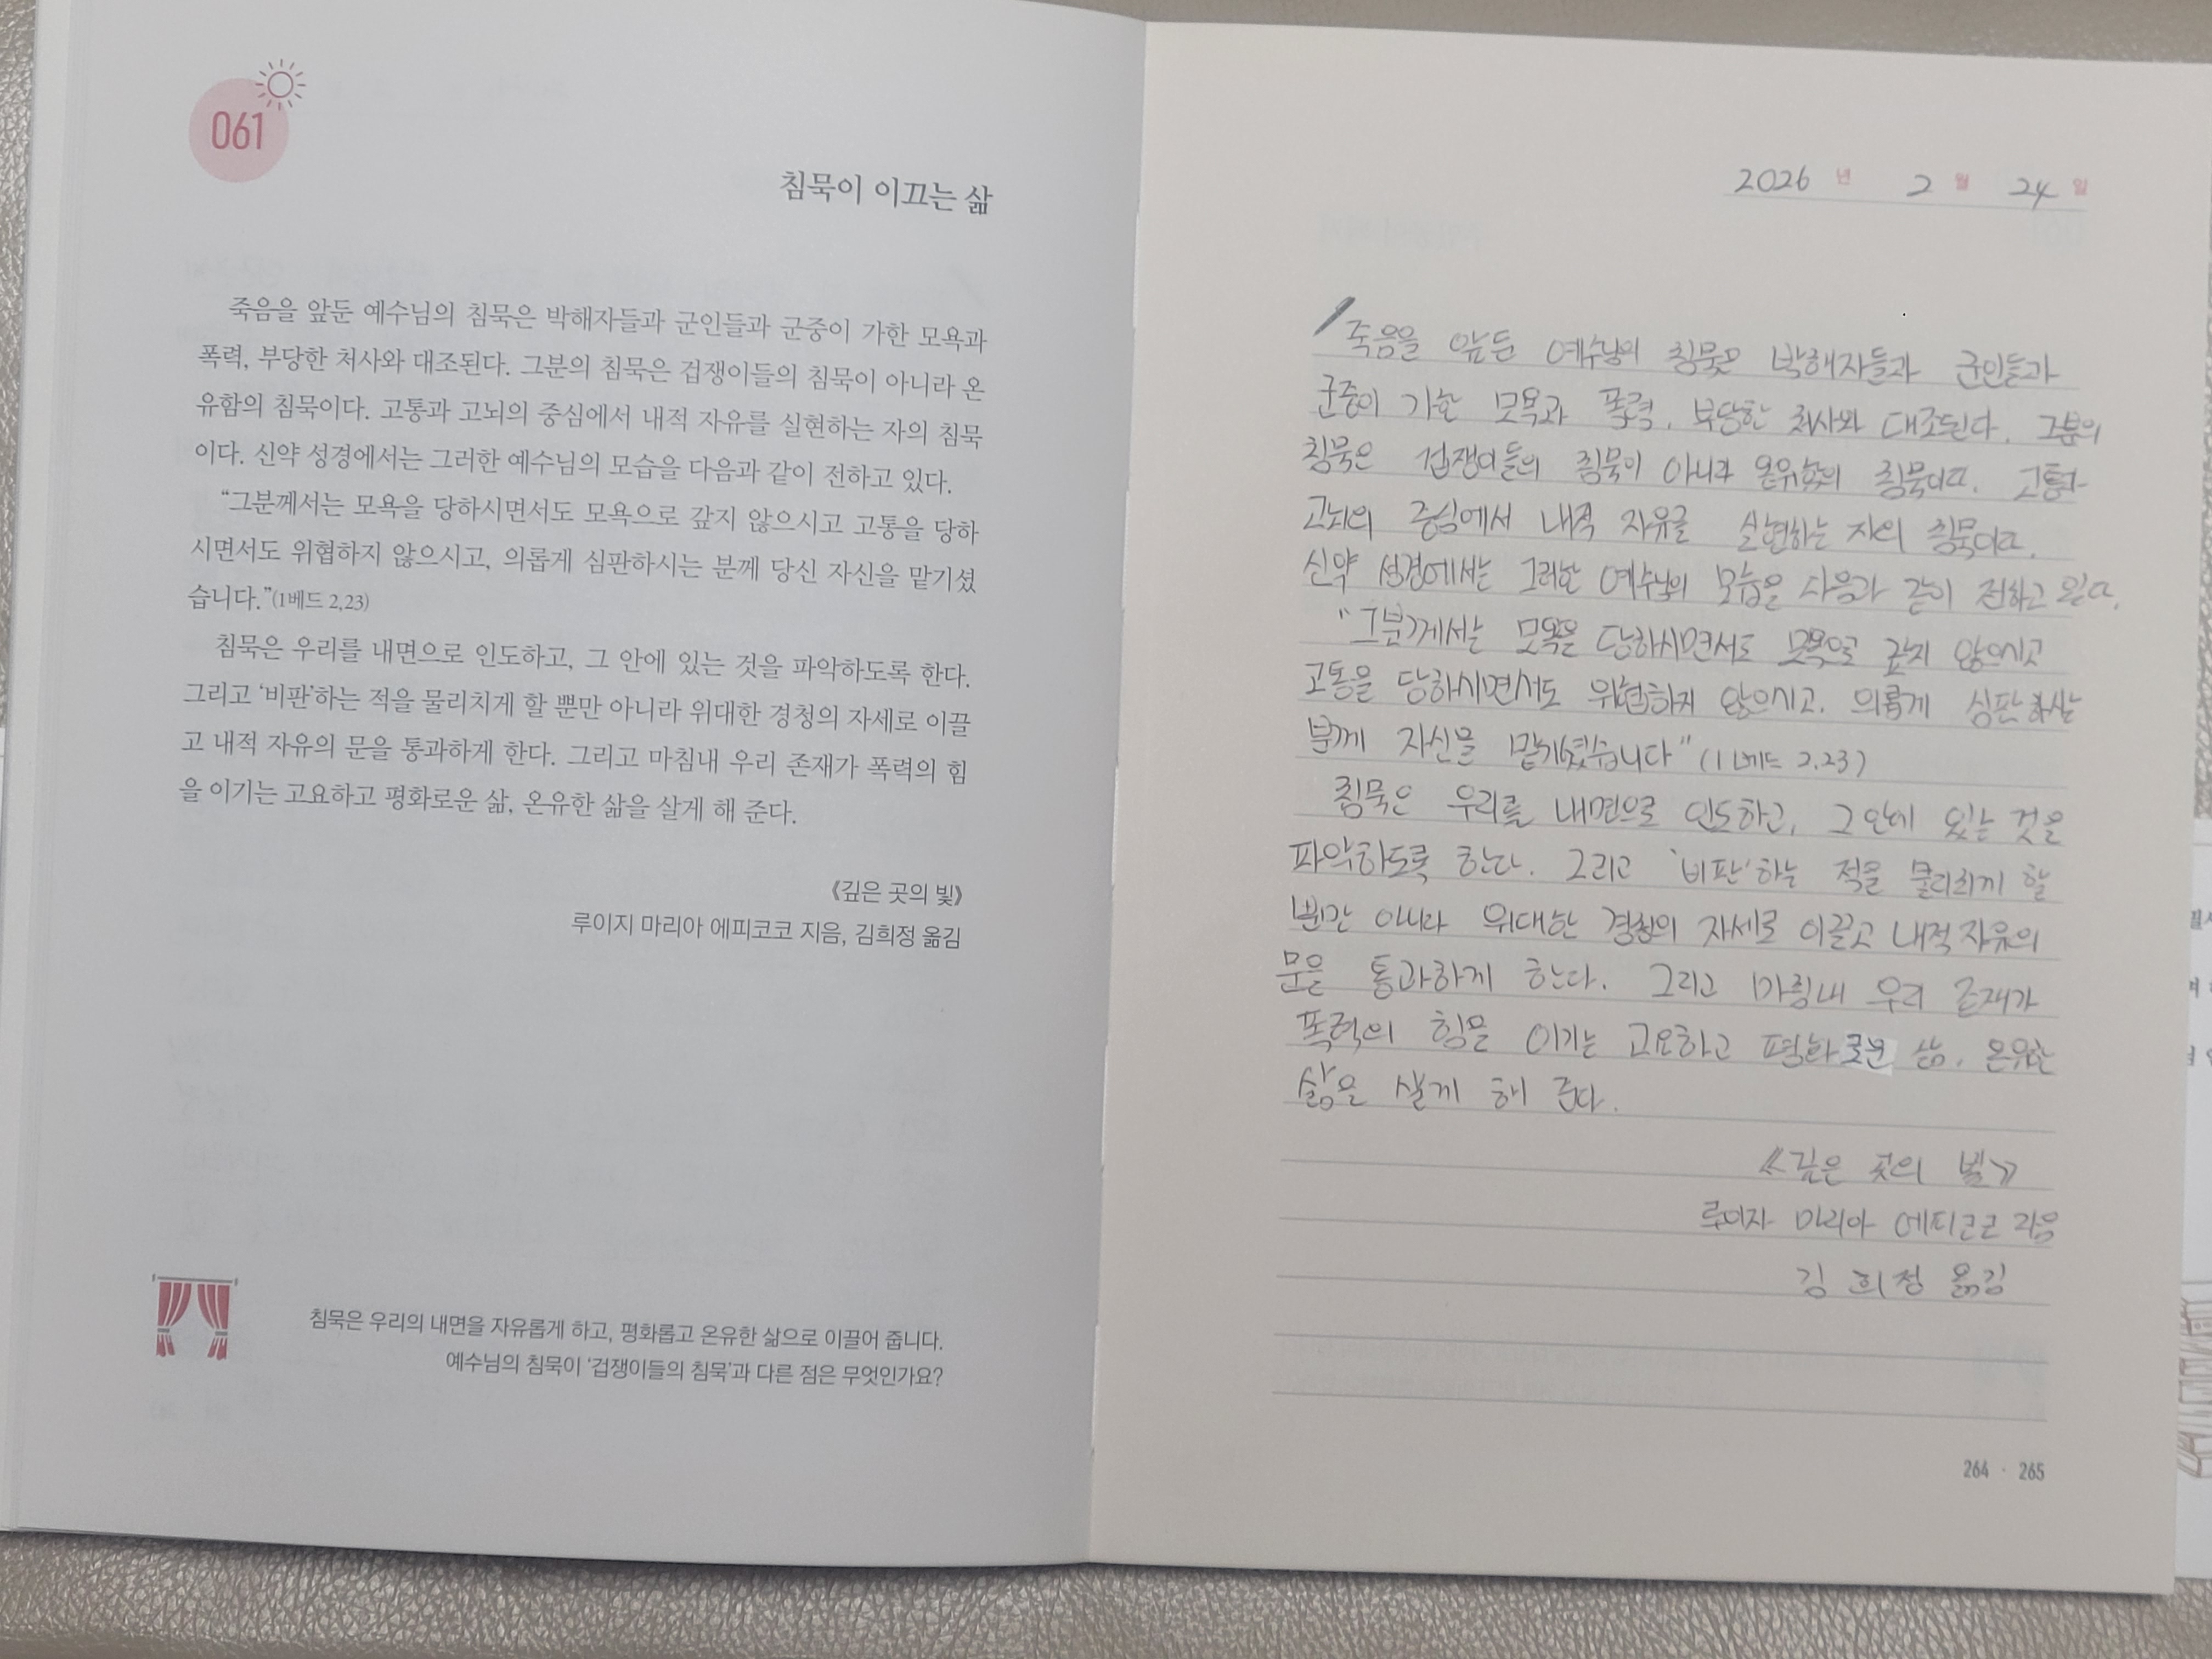 061
침묵이 이끄는 삶
죽음을 앞둔 예수님의 침묵은 박해자들과 군인들과 군중이 가한 모욕과
폭력, 부당한 처사와 대조된다. 그분의 침묵은 겁쟁이들의 침묵이 아니라 온
유함의 침묵이다. 고통과 고뇌의 중심에서 내적 자유를 실현하는 자의 침묵
이다. 신약 성경에서는 그러한 예수님의 모습을 다음과 같이 전하고 있다.
“그분께서는 모욕을 당하시면서도 모욕으로 갚지 않으시고 고통을 당하
시면서도 위협하지 않으시고, 의롭게 심판하시는 분께 당신 자신을 맡기셨
습니다.”(1베드 2,23)
침묵은 우리를 내면으로 인도하고, 그 안에 있는 것을 파악하도록 한다.
그리고 ‘비판’하는 적을 물리치게 할 뿐만 아니라 위대한 경청의 자세로 이끌
고 내적 자유의 문을 통과하게 한다. 그리고 마침내 우리 존재가 폭력의 힘
을 이기는 고요하고 평화로운 삶, 온유한 삶을 살게 해 준다.
《깊은 곳의 빛》
루이지 마리아 에피코코 지음, 김희정 옮김
침묵은 우리의 내면을 자유롭게 하고, 평화롭고 온유한 삶으로 이끌어 줍니다.
예수님의 침묵이 ‘겁쟁이들의 침묵’과 다른 점은 무엇인가요?
2026 년 2 월 24 일
죽음을 앞둔 예수님의 침묵은 박해자들과 군인들과
군중이 가한 모욕과 폭력, 부당한 처사와 대조된다. 그분의
침묵은 겁쟁이들의 침묵이 아니라 온유함의 침묵이다. 고통과
고뇌의 중심에서 내적 자유를 실현하는 자의 침묵이다.
신약 성경에서는 그러한 예수님의 모습을 다음과 같이 전하고 있다.
“그분께서는 모욕을 당하시면서도 모욕으로 갚지 않으시고
고통을 당하시면서도 위협하지 않으시고, 의롭게 심판하시는
분께 자신을 맡기셨습니다” (1베드 2.23)
침묵은 우리를 내면으로 인도하고, 그 안에 있는 것을
파악하도록 한다. 그리고 ‘비판’하는 적을 물리치게 할
뿐만 아니라 위대한 경청의 자세로 이끌고 내적 자유의
문을 통과하게 한다. 그리고 마침내 우리 존재가
폭력의 힘을 이기는 고요하고 평화로운 삶, 온유한
삶을 살게 해 준다.
《깊은 곳의 빛》
루이지 마리아 에피코코 지음
김희정 옮김
264 · 265